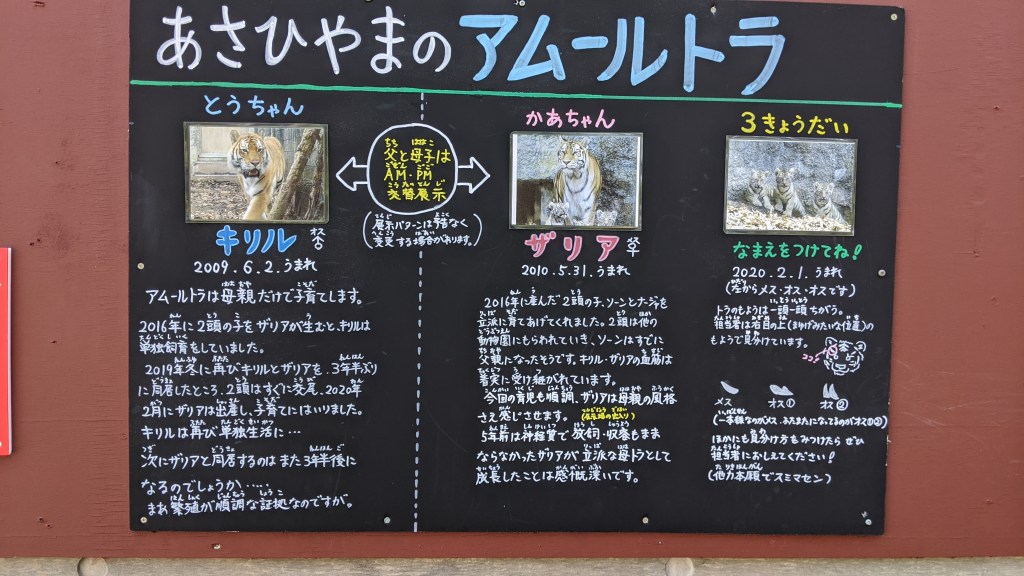 あさひやまのアムールトラ
とうちゃん
キリル オス♂
2009.6.2.うまれ
アムールトラは母親だけで子育てします。
2016年に2頭の子をザリアが生むと、キリルは
単独飼育をしていました。
2019年冬に再びキリルとザリアを3年半ぶり
に同居したところ、2頭はすぐに交尾。2020年
2月にザリアは出産し、子育てにはいりました。
キリルは再び単独生活に…
次にザリアと同居するのはまた3年半後に
なるのでしょうか……
まあ繁殖が順調な証拠なのですが。
父と母子は
AM・PM
交替展示
(展示パターンは予告なく
変更する場合があります。)
かあちゃん
ザリア メス♀
2010.5.31.うまれ
2016年に産んだ2頭の子、ソーンとナージャを
立派に育てあげてくれました。2頭は他の
動物園にもらわれていき、ソーンはすでに
父親になったそうです。キリル・ザリアの血筋は
着実に受け継がれています。
今回の育児も順調。ザリアは母親の風格
さえ感じさせます。
5年前は神経質で放飼・収容もまま
ならなかったザリアが立派な母トラとして
成長したことは感慨深いです。
3きょうだい
なまえをつけてね!
2020.2.1.うまれ
(左からメス・オス・オスです)
トラのもようは一頭一頭ちがう。
担当者は右目の上(まゆげみたいな位置)の
もようで見分けています。
ココ
メス オス① オス②
(一本線なのがメス、ふたまたになってるのがオス①②)
ほかにも見分け方をみつけたらぜひ
担当者におしえてください!
(他力本願でスミマセン)